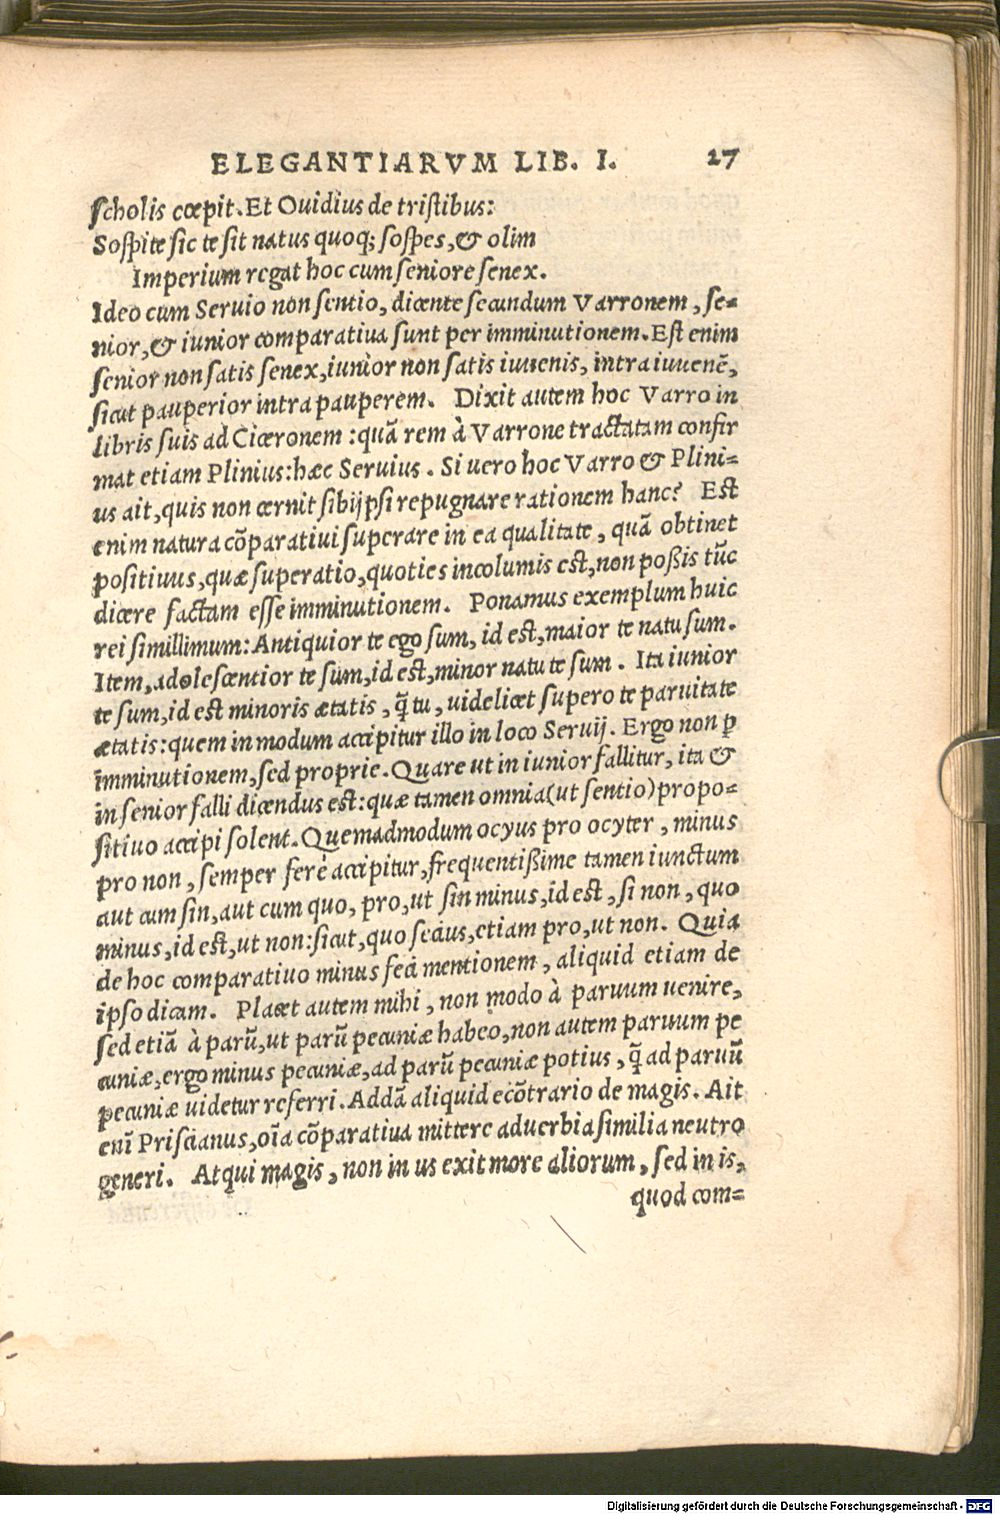 ELEGANTIARVM LIB. I. 27
ſcholis cœpit. Et Ouidius de triſtibus:
Soſpite ſic te ſit natus quoq; ſoſpes, & olim
Imperium regat hoc cum ſeniore ſenex.
Ideo cum Seruio non ſentio, dicente ſecundum Varronem, ſe=
nior, & iunior comparatiua ſunt per imminutionem. Eſt enim
ſenior non ſatis ſenex, iunior non ſatis iuuenis, intra iuuenē,
ſicut pauperior intra pauperem. Dixit autem hoc Varro in
libris ſuis ad Ciceronem: quã rem à Varrone tractatam confir
mat etiam Plinius: hæc Seruius. Si uero hoc Varro & Plini=
us ait, quis non cernit ſibijpſi repugnare rationem hanc? Eſt
enim natura cõparatiui ſuperare in ea qualitate, quã obtinet
poſitiuus, quæ ſuperatio, quoties incolumis eſt, non poßis tūc
dicere factam eſſe imminutionem. Ponamus exemplum huic
rei ſimillimum: Antiquior te ego ſum, id eſt, maior te natu ſum.
Item, adoleſcentior te ſum, id eſt, minor natu te ſum. Ita iunior
te ſum, id eſt minoris ætatis, q̃ tu, uidelicet ſupero te paruitate
ætatis: quem in modum accipitur illo in loco Seruij. Ergo non ꝑ
imminutionem, ſed proprie. Quare ut in iunior fallitur, ita &
in ſenior falli dicendus eſt: quæ tamen omnia (ut ſentio) propo=
ſitiuo accipi ſolent. Quemadmodum ocyus pro ocyter, minus
pro non, ſemper ferè accipitur, frequentißime tamen iunctum
aut cum ſin, aut cum quo, pro, ut ſin minus, id eſt, ſi non, quo
minus, id eſt, ut non: ſicut, quo ſecius, etiam pro, ut non. Quia
de hoc comparatiuo minus feci mentionem, aliquid etiam de
ipſo dicam. Placet autem mihi, non modo à paruum uenire,
ſed etiã à parū, ut parū pecuniæ habeo, non autem paruum pe
cuniæ, ergo minus pecuniæ, ad parū pecuniæ potius, q̃ ad paruū
pecuniæ uidetur referri. Addã aliquid ecõtrario de magis. Ait
enī Priſcianus, oīa cõparatiua mittere aduerbia ſimilia neutro
generi. Atqui magis, non in us exit more aliorum, ſed in is,
quod com=
Digitalisierung gefördert durch die Deutsche Forschungsgemeinschaft - DFG